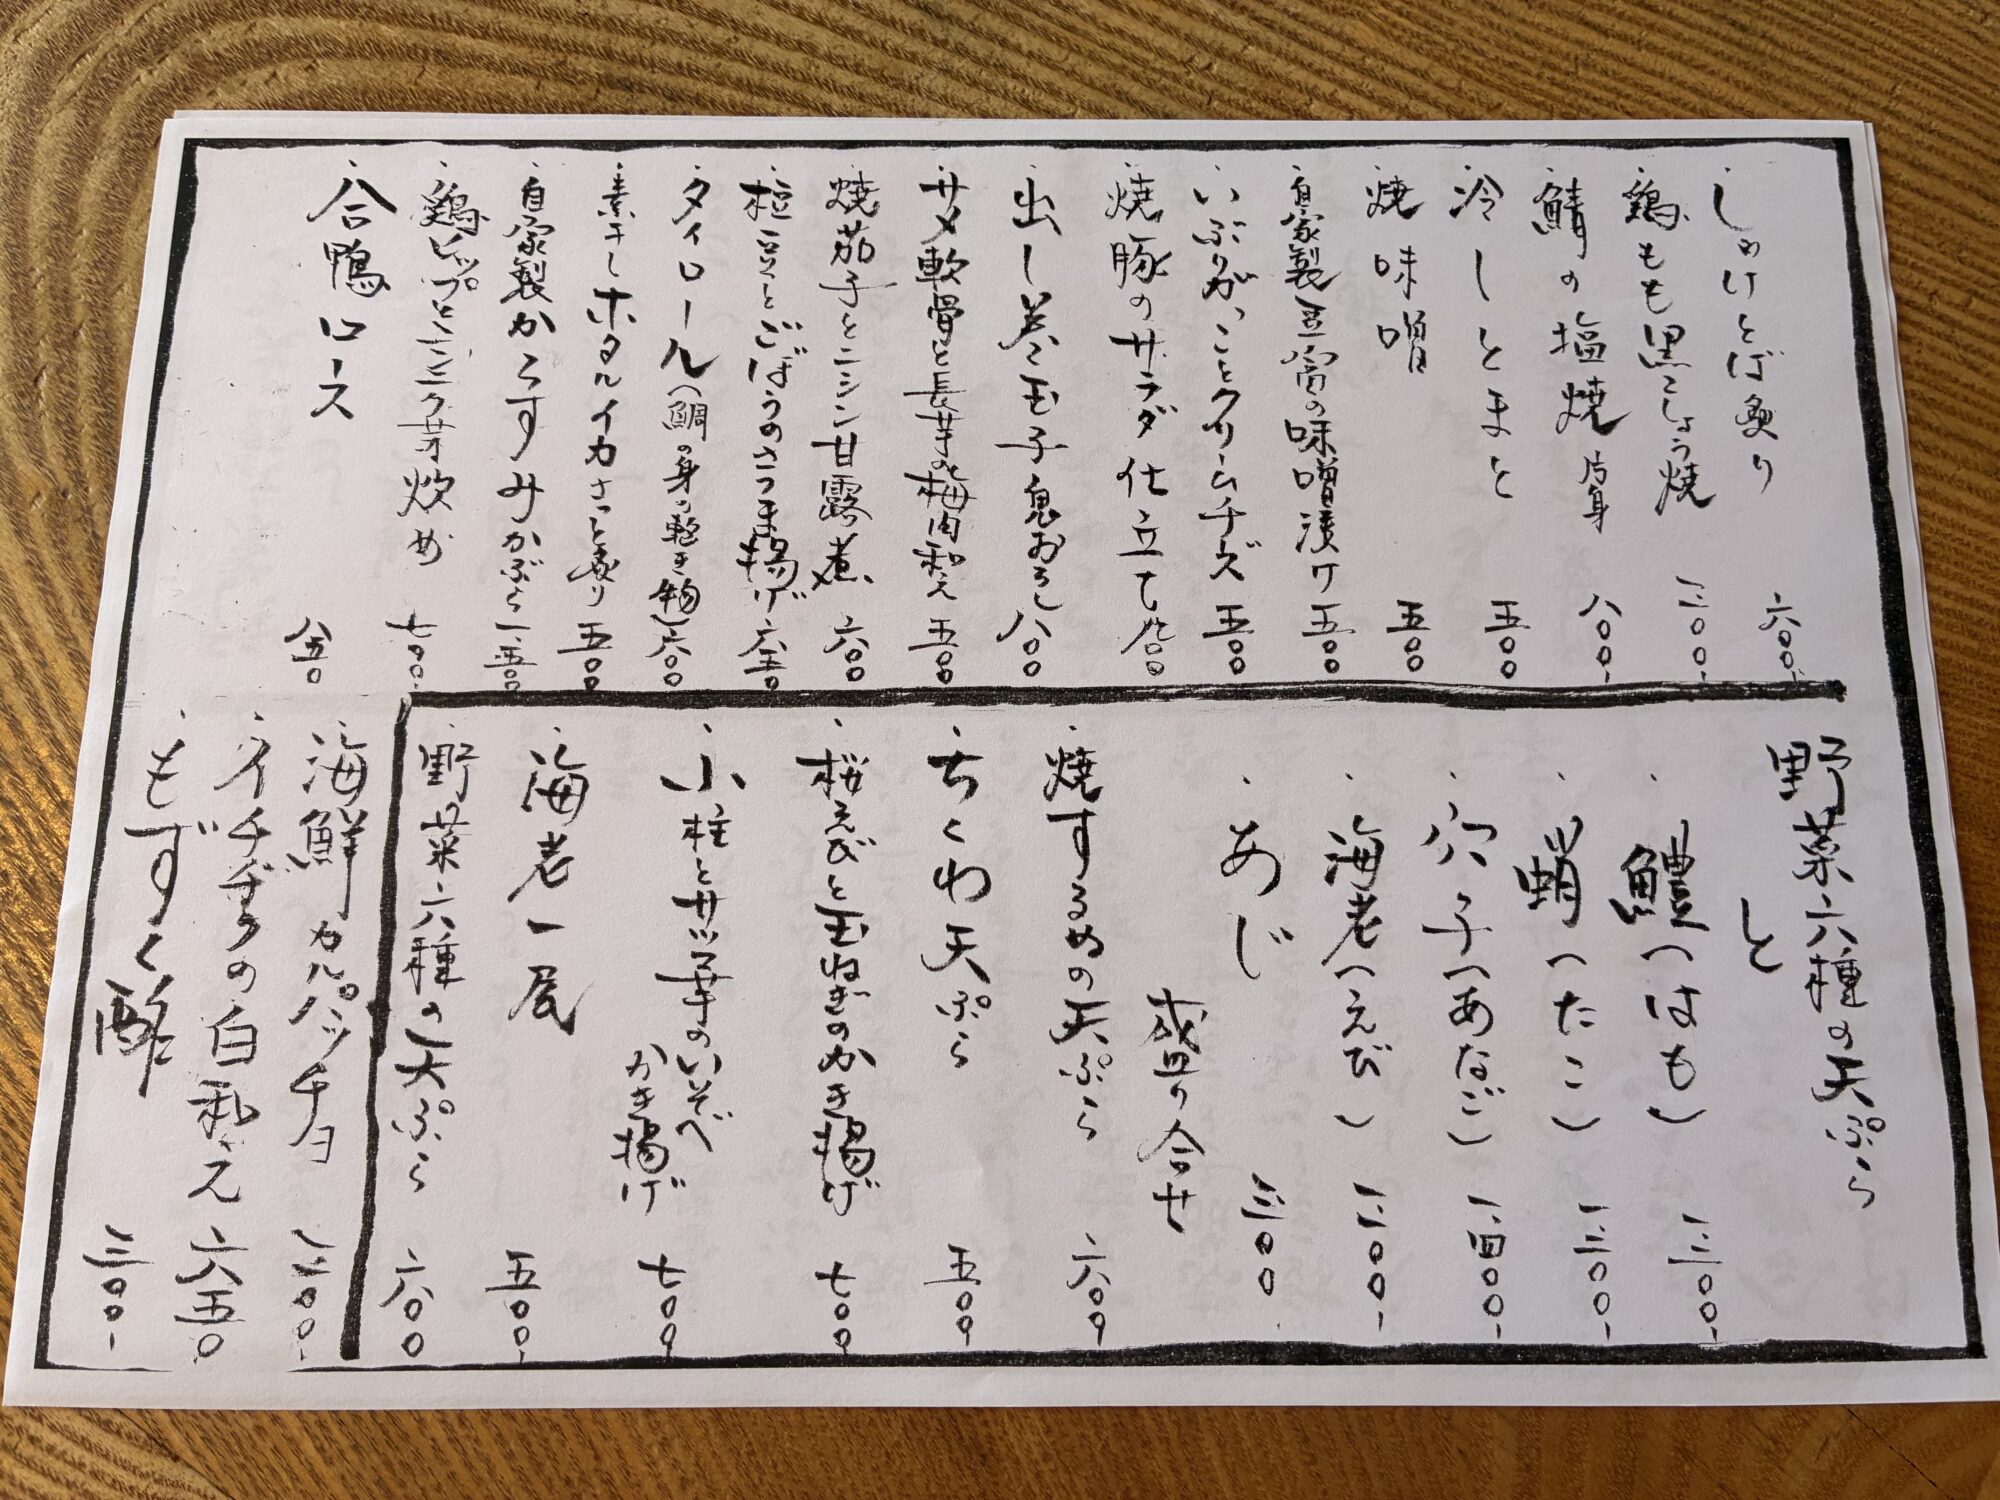 ・しゃけとば炙り 六〇〇-
・鶏もも黒こしょう焼
・鯖の塩焼 片身 八〇〇-
・冷しとまと 五〇〇
・焼味噌 五〇〇
・自家製豆富の味噌漬け 五〇〇
・いぶりがっことクリームチーズ 五〇〇
・焼豚のサラダ仕立て 八〇〇
・出し巻玉子鬼おろし 八〇〇
・サメ軟骨と長芋の梅肉和え 五〇〇
・焼茄子とニシン甘露煮 六〇〇
・枝豆とごぼうのさつま揚げ 六五〇
・タイロール(鯛の身の乾き物) 六〇〇
・素干しホタルイカさっと炙り 五〇〇
・自家製からすみかぶら 一、五〇〇
・鶏ヒップとニンニク芽炒め 七〇〇-
・合鴨ロース 八五〇
野菜六種の天ぷら
と
・鱧(はも) 一、三〇〇-
・蛸(たこ) 一、三〇〇-
・穴子(あなご) 一、四〇〇-
・海老(えび)
・あじ
盛り合せ
・焼するめの天ぷら 六〇〇
・ちくわ天ぷら 五〇〇
・桜えびと玉ねぎのかき揚げ 七〇〇
・小柱とサツマ芋のいそべ
かき揚げ 七〇〇
・海老一尾 五〇〇-
・野菜六種の天ぷら 六〇〇
・海鮮カルパッチョ
・イチヂクの白和え 六五〇
・もずく酢